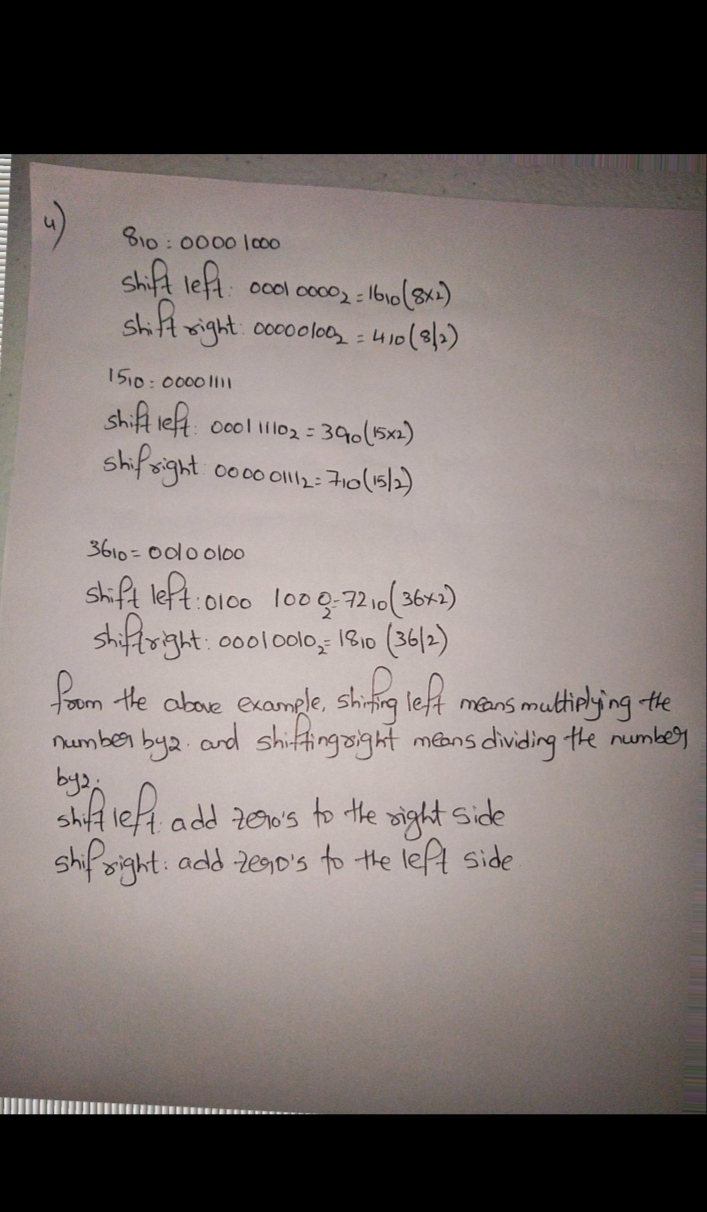 4)
8₁₀ : 00001000
shift left: 00010000₂ = 16₁₀ (8x2)
shift right: 00000100₂ = 4₁₀ (8/2)
15₁₀ : 00001111
shift left: 00011110₂ = 30₁₀ (15x2)
shif right: 00000111₂ = 7₁₀ (15/2)
36₁₀ = 00100100
shift left: 0100 1000₂ = 72₁₀ (36x2)
shift right: 00010010₂ = 18₁₀ (36/2)
from the above example, shifing left means multiplying the
number by 2. and shifting right means dividing the number
by 2.
shift left: add zero's to the right side
shif right: add zero's to the left side